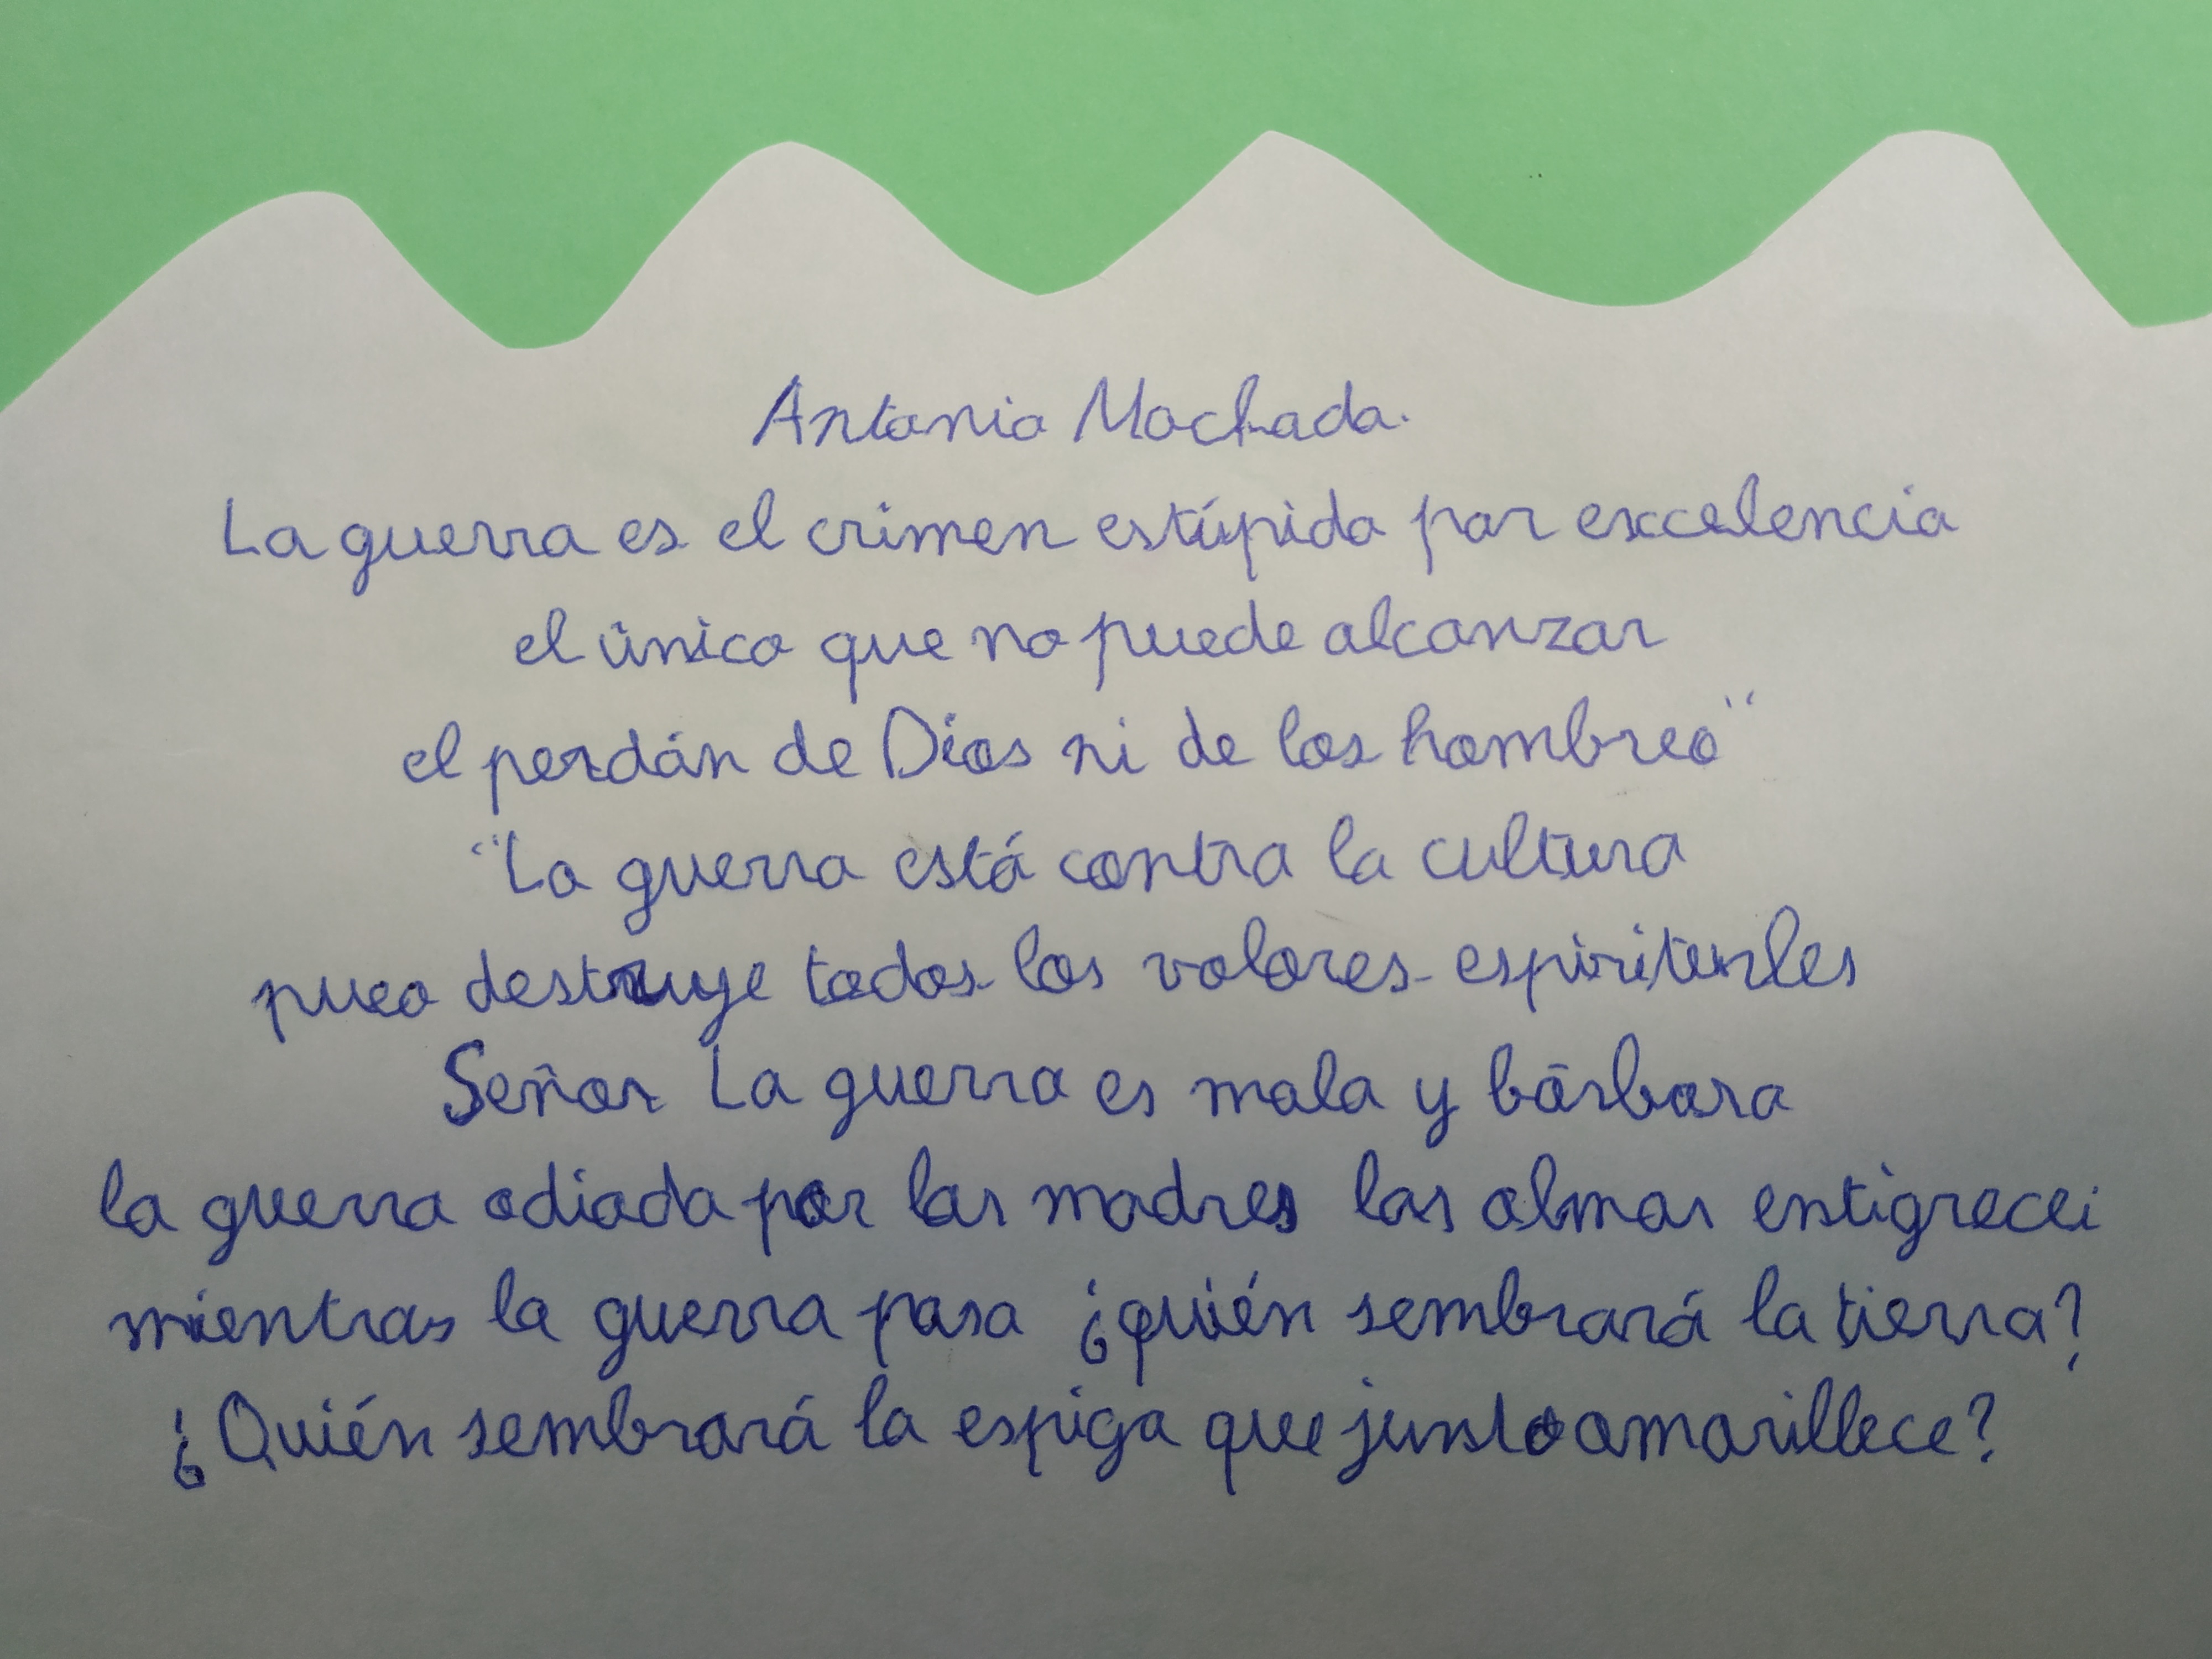 Antonio Machado.
La guerra es el crimen estúpido por excelencia
el único que no puede alcanzar
el perdón de Dios ni de los hombres"
"La guerra está contra la cultura
pues destruye todos los valores espirituales
Señor La guerra es mala y bárbara
la guerra odiada por las madres las almas entigrecei
mientras la guerra pasa ¿quién sembrará la tierra?
¿Quién sembrará la espiga que junio amarillece?